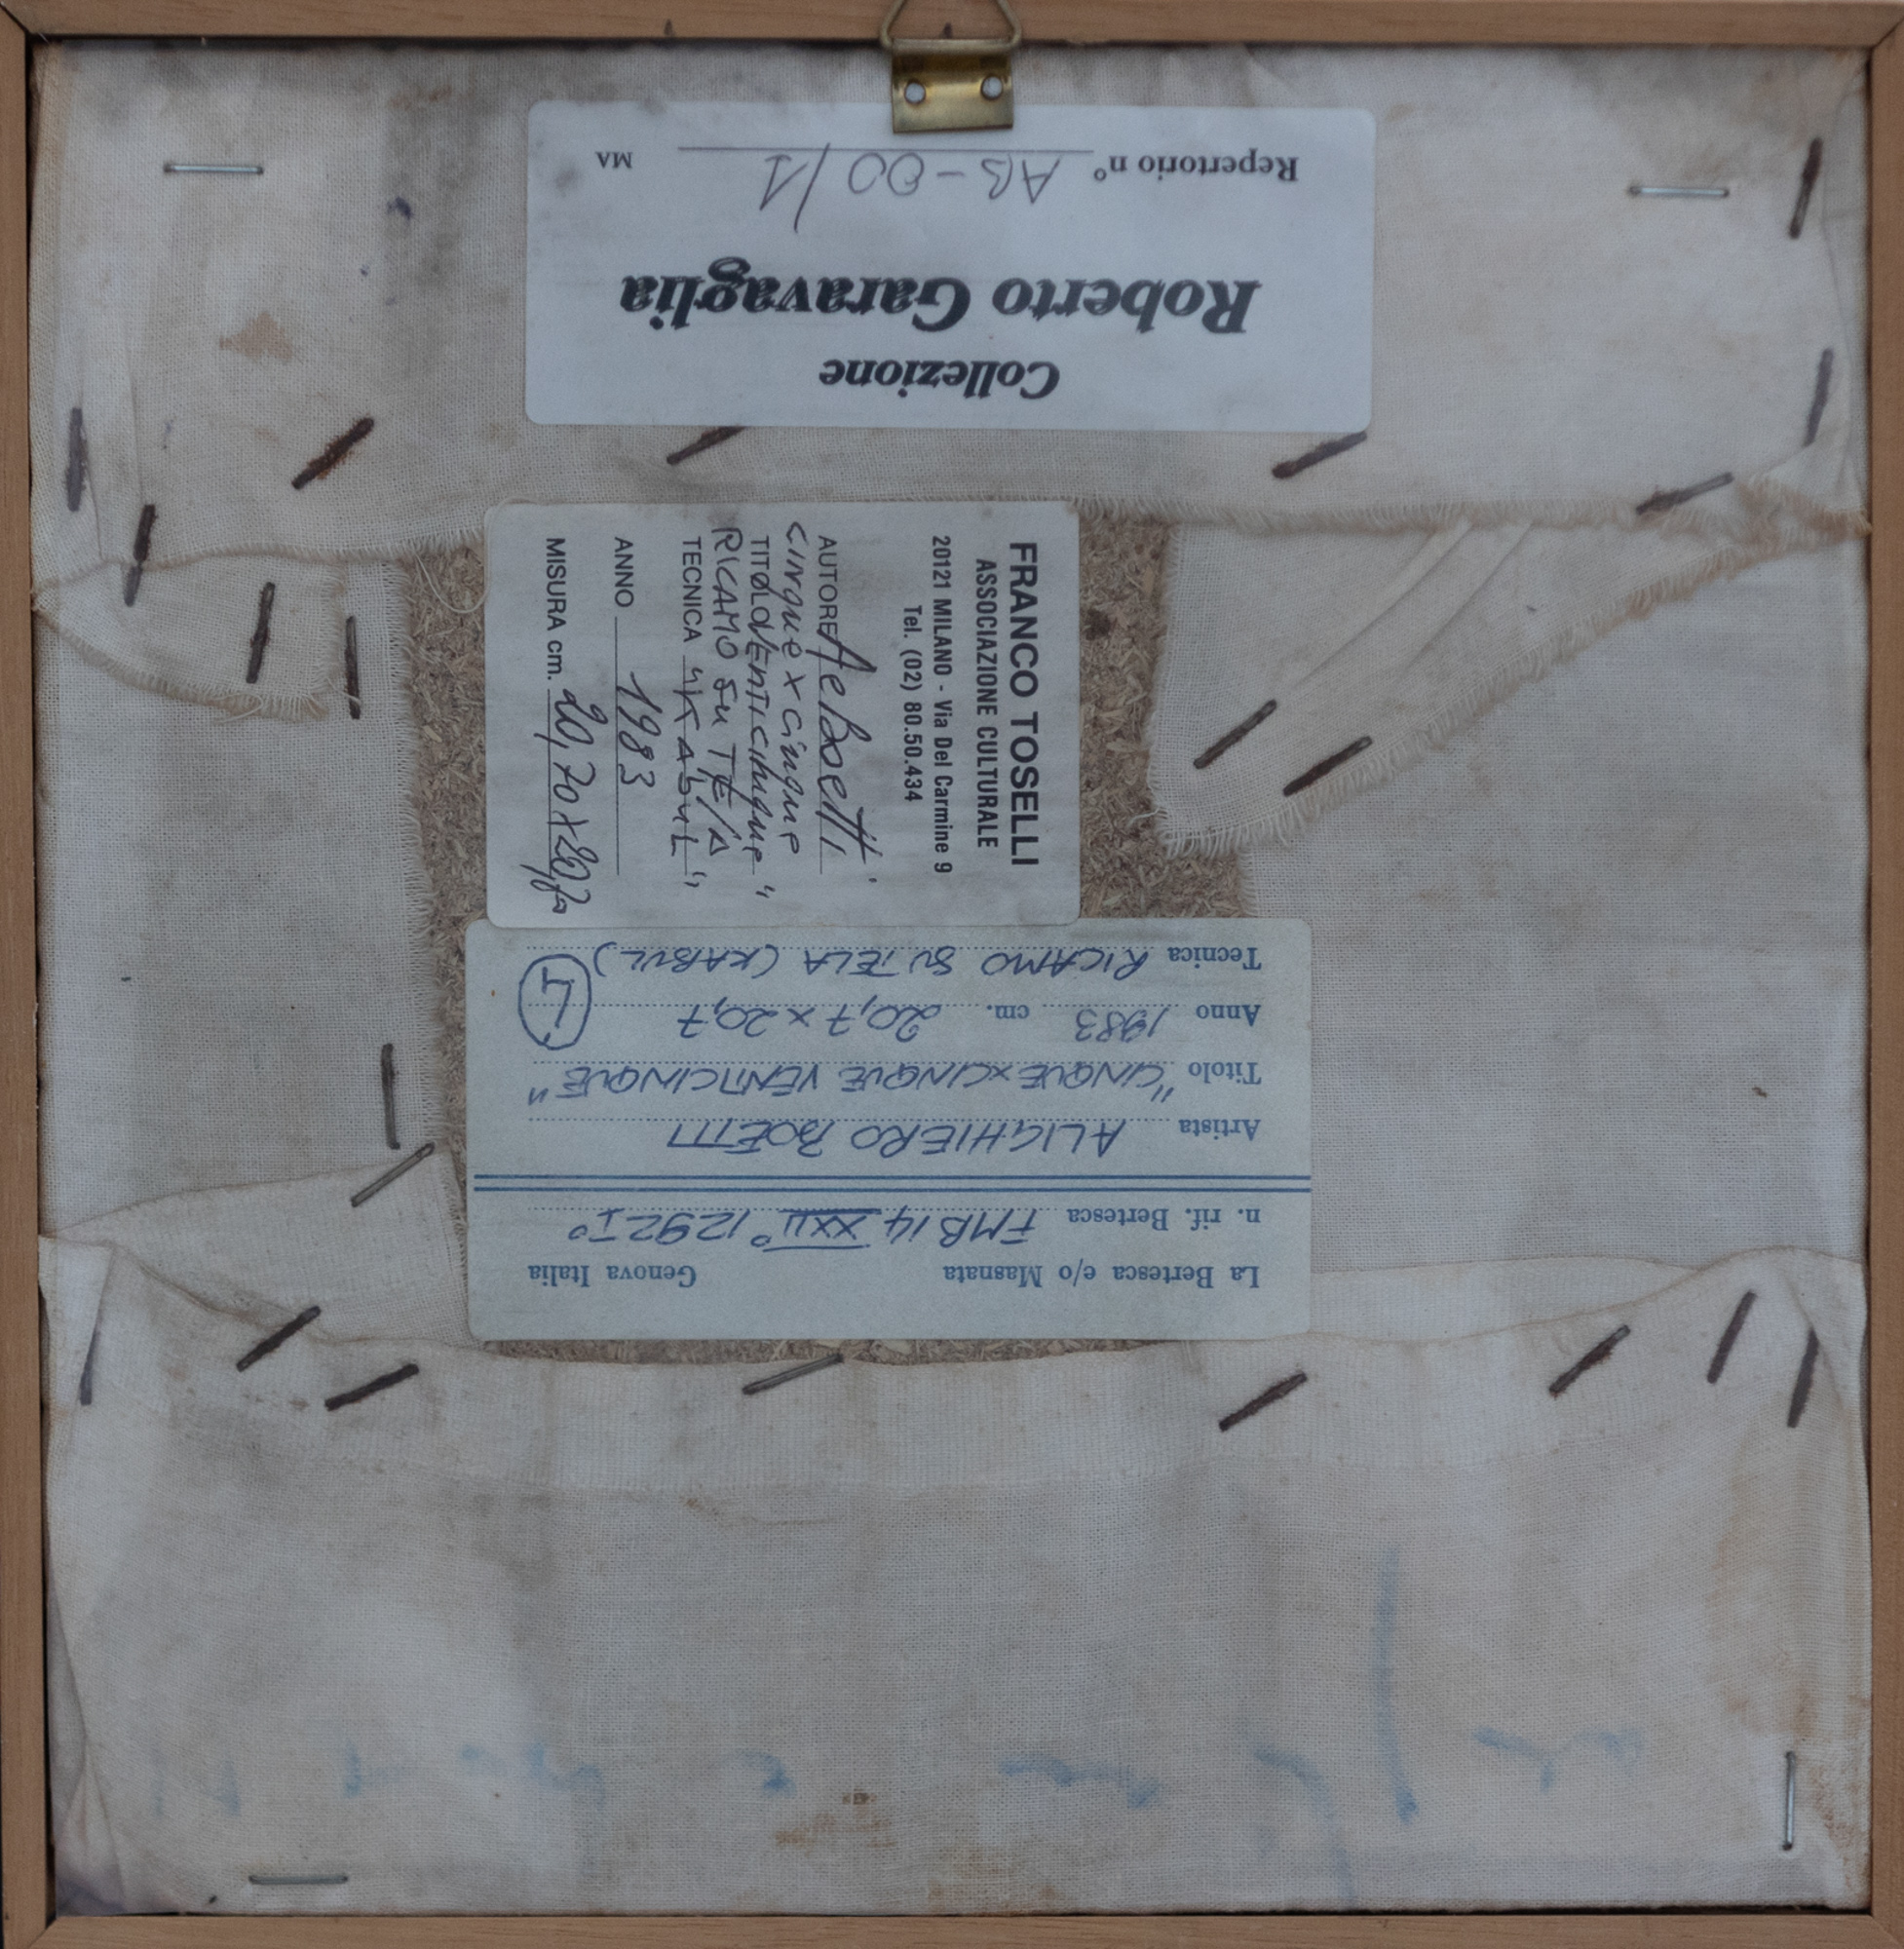 Collezione
Roberto Garavaglia
Repertorio n° AB-00/1 MA
FRANCO TOSELLI
ASSOCIAZIONE CULTURALE
20121 MILANO - Via Del Carmine 9
Tel. (02) 80.50.434
AUTORE Ae Boetti
cinque x cinque
TITOLO VENTICINQUE"
RICAMO SU TELA
TECNICA "KABUL"
ANNO 1983
MISURA cm. 20,70x20,70
La Bertesca e/o Masnata Genova Italia
n. rif. Bertesca FMB14 XXII° 1292I°
Artista ALIGHIERO BOETTI
Titolo "CINQUE×CINQUE VENTICINQUE"
Anno 1983 cm. 20,7×20,7
Tecnica RICAMO SU TELA (KABUL)